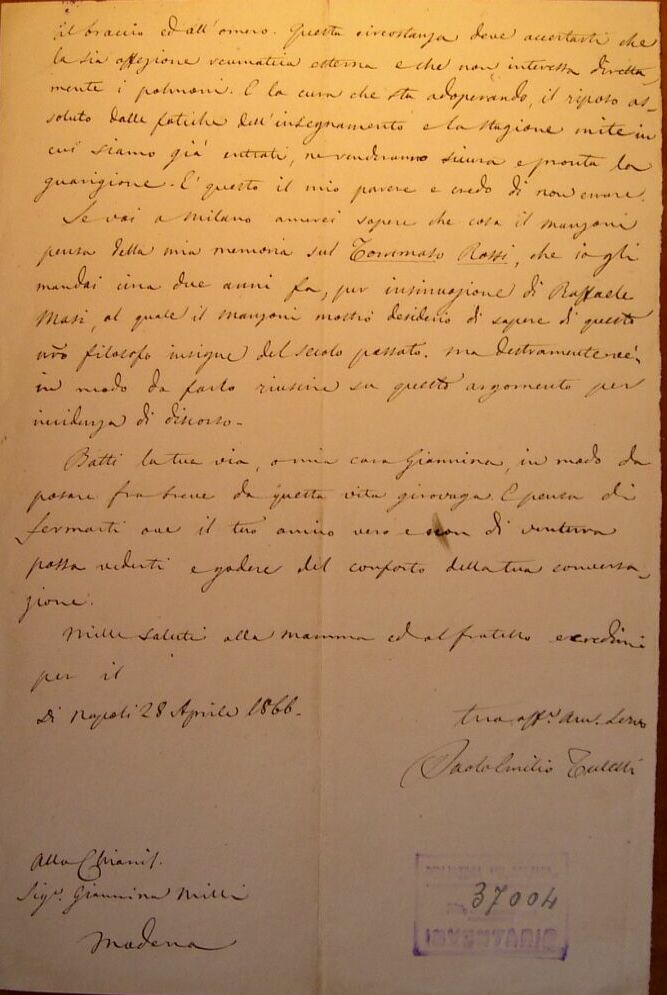 il braccio ed all'omero. Questa circostanza deve accertarti che
la sia affezione reumatica esterna e che non interessa diretta-
mente i polmoni. E la cura che sta adoperando, il riposo as-
soluto dalle fatiche dell'insegnamento e la stagione mite in
cui siamo già entrati, ne renderanno sicura e pronta la
guarigione. E' questo il mio parere e credo di non errare.
Se vai a Milano amerei sapere che cosa il Manzoni
pensa della mia memoria sul Tommaso Rossi, che io gli
mandai una due anni fa, per insinuazione di Raffaele
Masi, al quale il Manzoni mostrò desiderio di sapere di questo
nrō filosofo insigne del secolo passato. Ma destramente ve',
in modo da farlo riuscire su questo argomento per
incidenza di discorso.
Batti la tua via, o mia cara Giannina, in modo da
posare fra breve da questa vita girovaga. E pensa di
fermarti ove il tuo amico vero e non di ventura
possa vederti e godere del conforto della tua conversa-
zione.
Mille saluti alla mamma ed al fratello e credimi
per il
Di Napoli 28 Aprile 1866.
tuo aff.o am. Servo
Paolo Emilio Tulelli
Alla Chiaris.
Sig.a Giannina Milli
Modena
37004